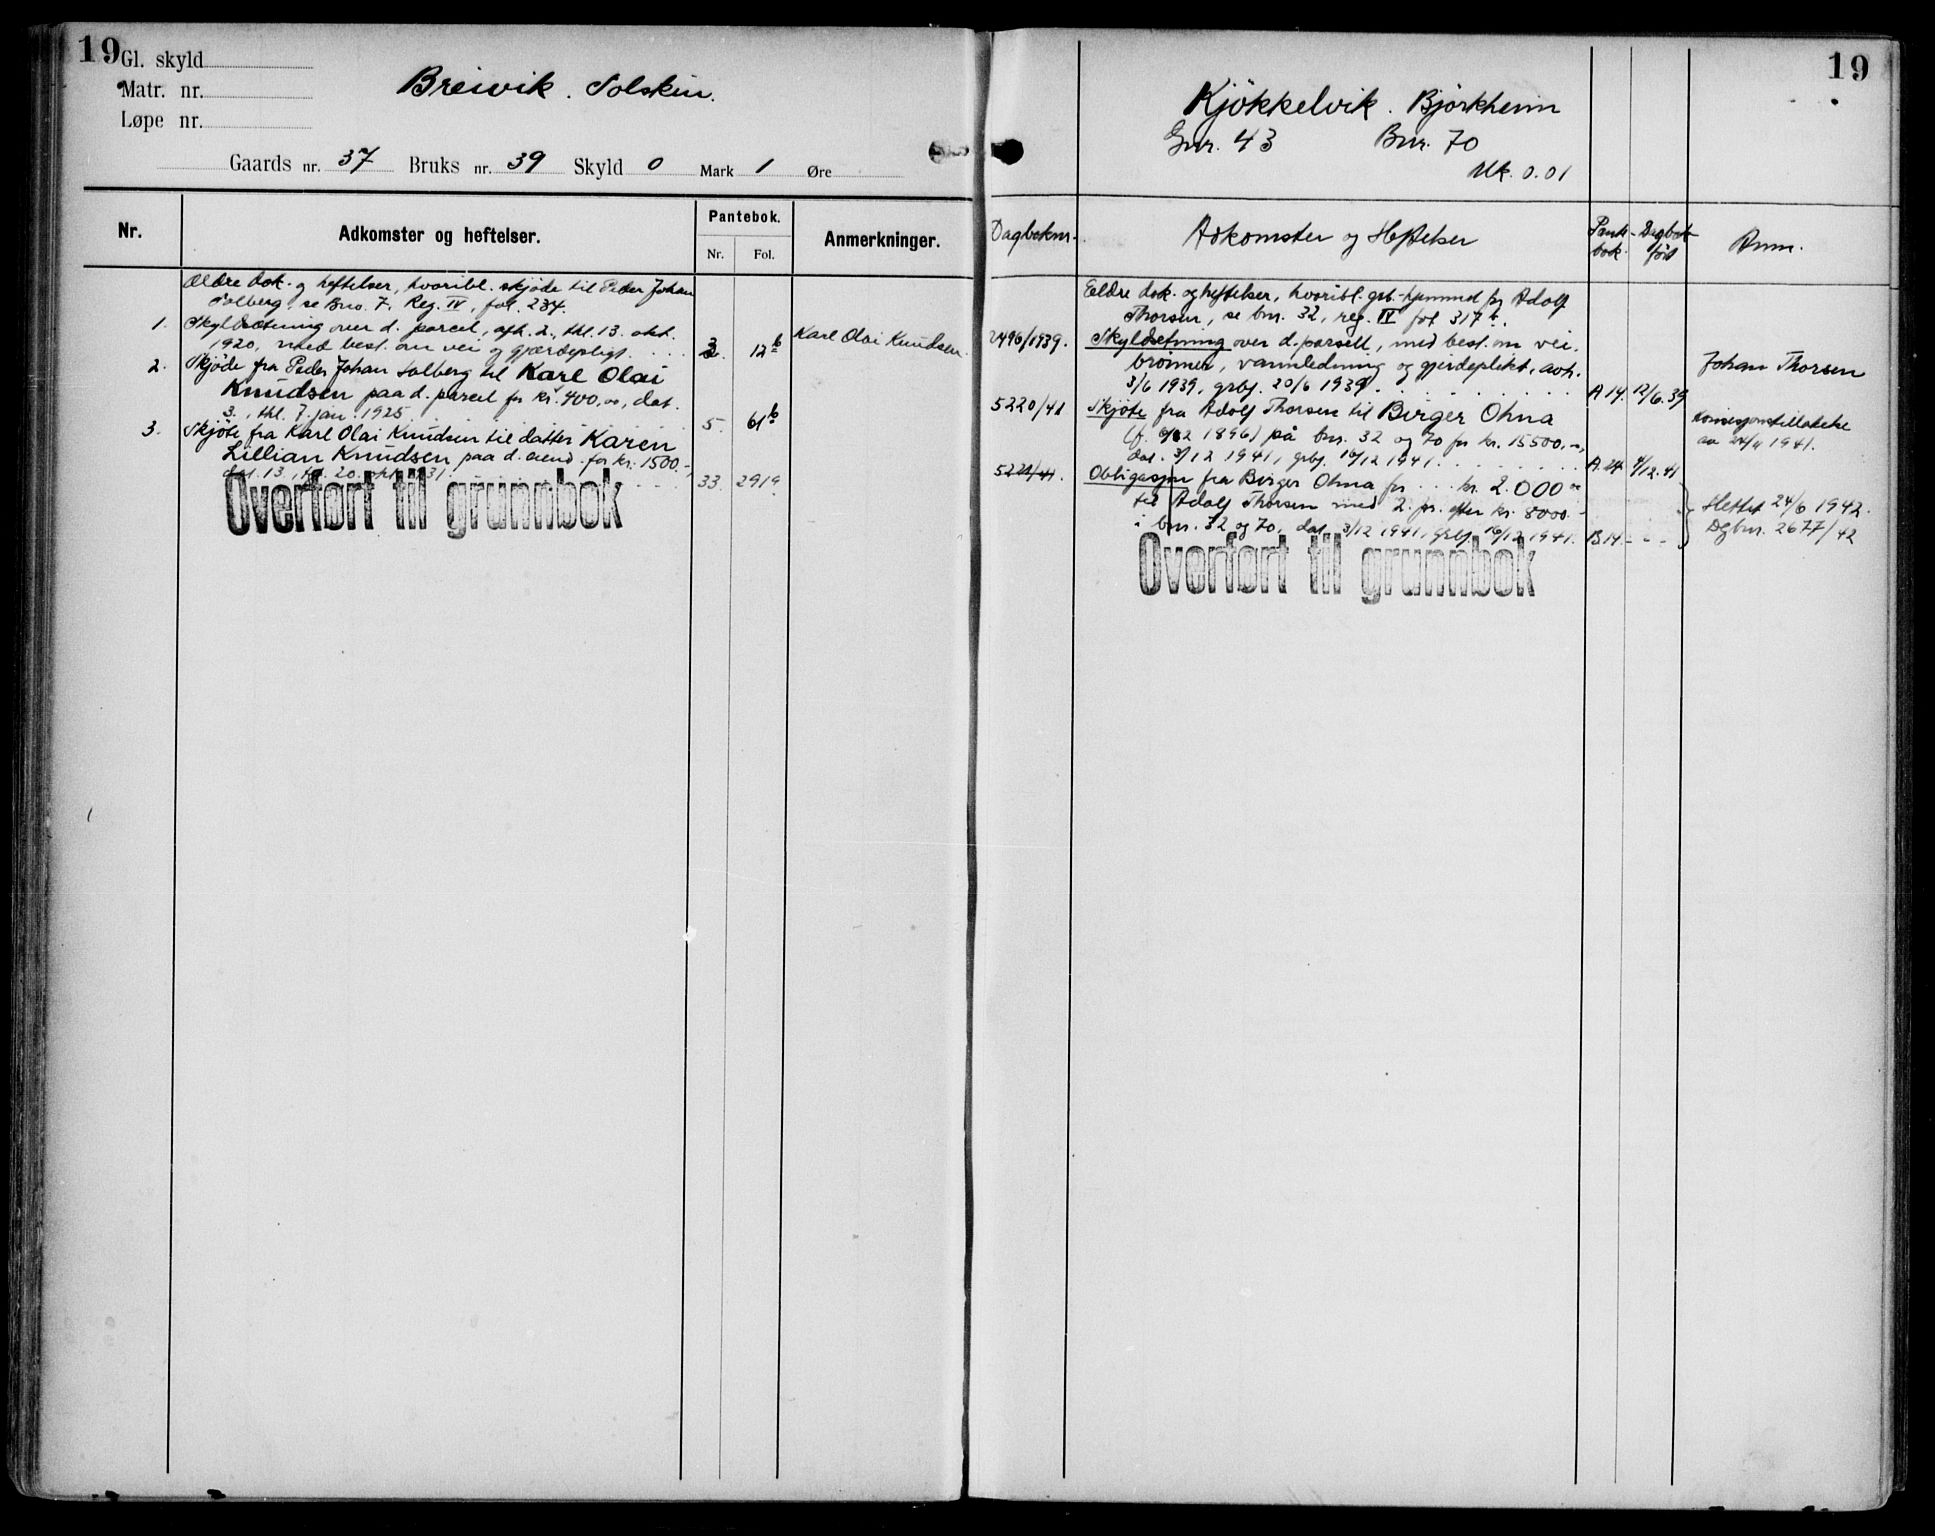 19
Gl. skyld
Matr. nr.
Løpe nr.
Breivik. Solskin.
Gaards nr. 37 Bruks nr. 39 Skyld 0 Mark 1 Øre
Nr.
Adkomster og heftelser.
Pantebok.
Nr. Fol.
Anmerkninger.
Ældre dok. og heftelser, hvoribl. skjøde til Peder Johan
Solberg, se Bno. 7, Reg. IV, fol. 234.
1. Skyldsetning over d. parcel, afh. 2., thl. 13. okt.
1920, med best. om vei og gjærdepligt. 3. 12b Karl Olai Knudsen.
2. Skjøde fra Peder Johan Solberg til Karl Olai
Knudsen paa d. parcel for kr. 400,00, dat.
3., thl. 7. jan. 1925 5. 61b
3. Skjøte fra Karl Olai Knudsen til datter Karen
Lillian Knudsen paa d. eiend. for kr. 1500.-
dat. 13., 20. 31. 33. 291a
Overført til grunnbok
19
Kjøkkelvik. Bjørkheim
Gnr. 43 Bnr. 70
Mk. 0.01
Dagboknr.
Adkomster og Heftelser
Pante-
bok.
Dagbok-
ført
Anm.
Eeldre dok. og heftelser, hvoribl. grb.-hjemmel for Adolf
Thorsen, se bnr. 32, reg. IV fol 317b.
2496/1939. Skyldsetning over d. parsell, med best. om vei,
brønner, vannledning og gjerdeplikt, avh.
3/6 1939, grbj. 20/6 1939. A 14. 12/6.39 Johan Thorsen
5220/41 Skjøte fra Adolf Thorsen til Birger Ohna
(f. 12 1896) på bnr. 32 og 70 for kr. 15500,-,
dat. 3/12 1941, grbj. 16/12 1941. A. 24 4/12.41
Konsesjonstillatelse
av 24/11 1941.
5221/41. Obligasjon fra Birger Ohna for kr. 2.000
til Adolf Thorsen med 2. pr. efter kr. 8000.-
i bnr. 32 og 70, dat. 3/12 1941, grbj. 16/12 1941. B.14. - - -
Slettet 24/6 1942.
Dgbnr. 2677/42
Overført til grunnbok